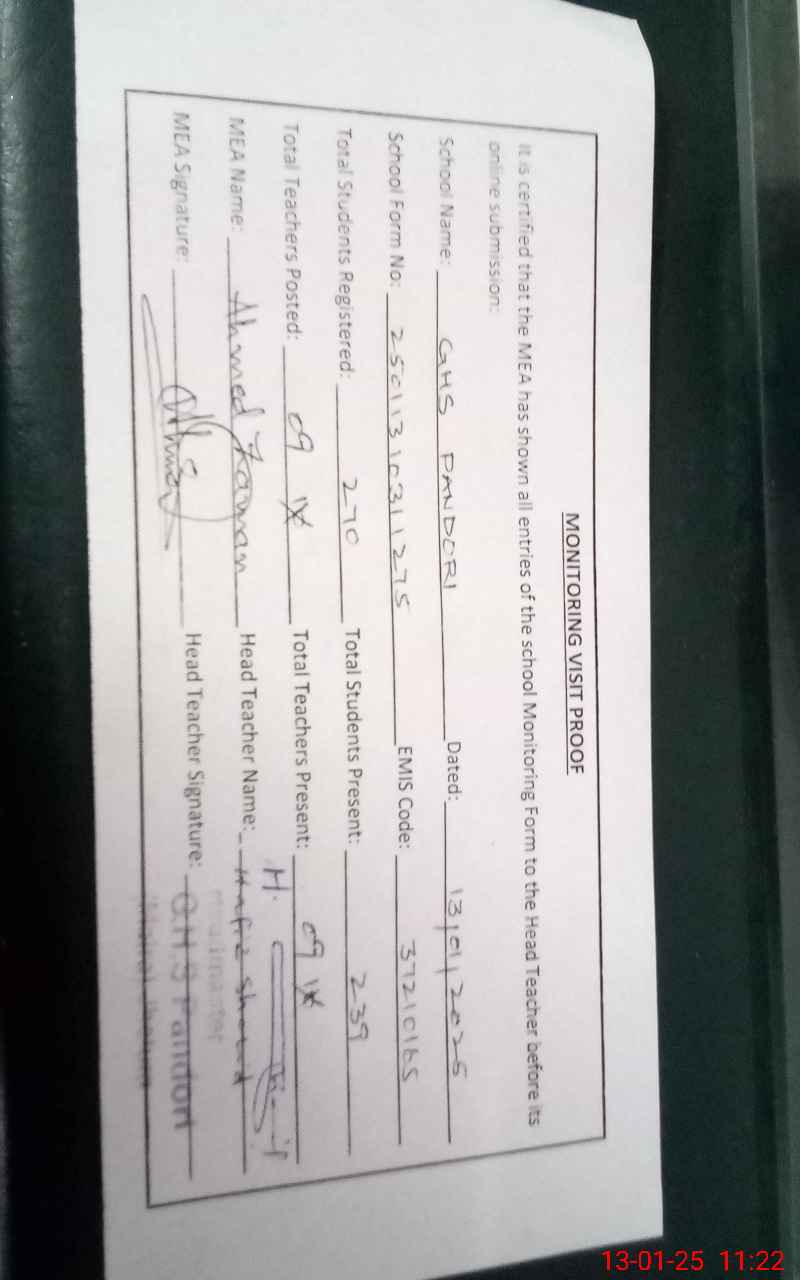 MONITORING VISIT PROOF
It is certified that the MEA has shown all entries of the school Monitoring Form to the Head Teacher before its
online submission:
School Name: GHS PANDORI Dated: 13/01/2025
School Form No: 25011310311275 EMIS Code: 37210165
Total Students Registered: 270 Total Students Present: 239
Total Teachers Posted: 09 Total Teachers Present: 09
MEA Name: Ahmed Zaman Head Teacher Name: Hafiz
MEA Signature: Head Teacher Signature:
G.H.S Pandori
13-01-25 11:22